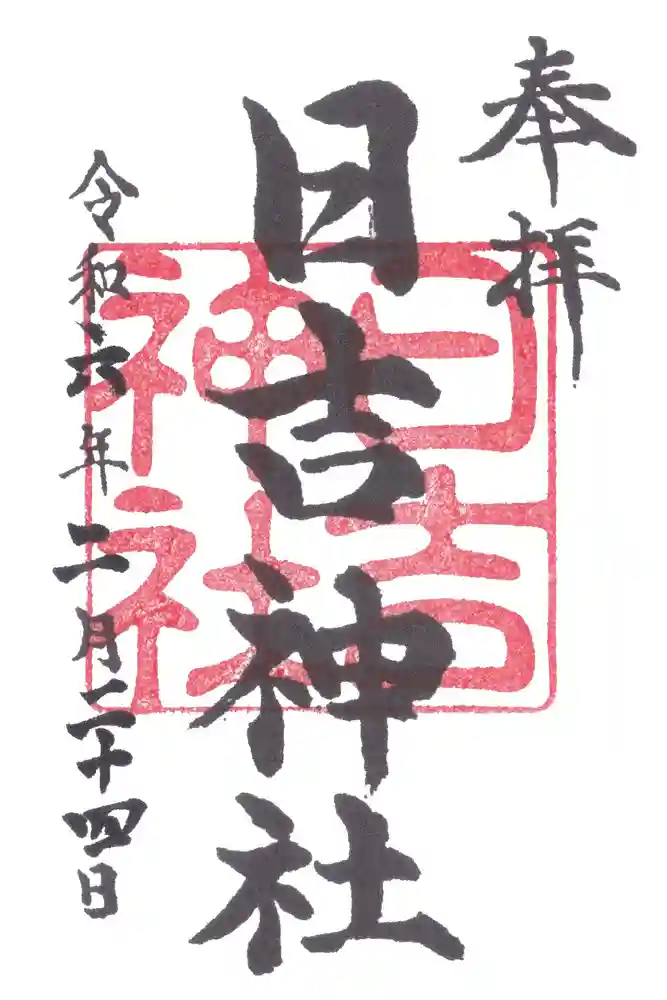 奉拝
日吉神社
令和六年二月二十四日
日吉
神社